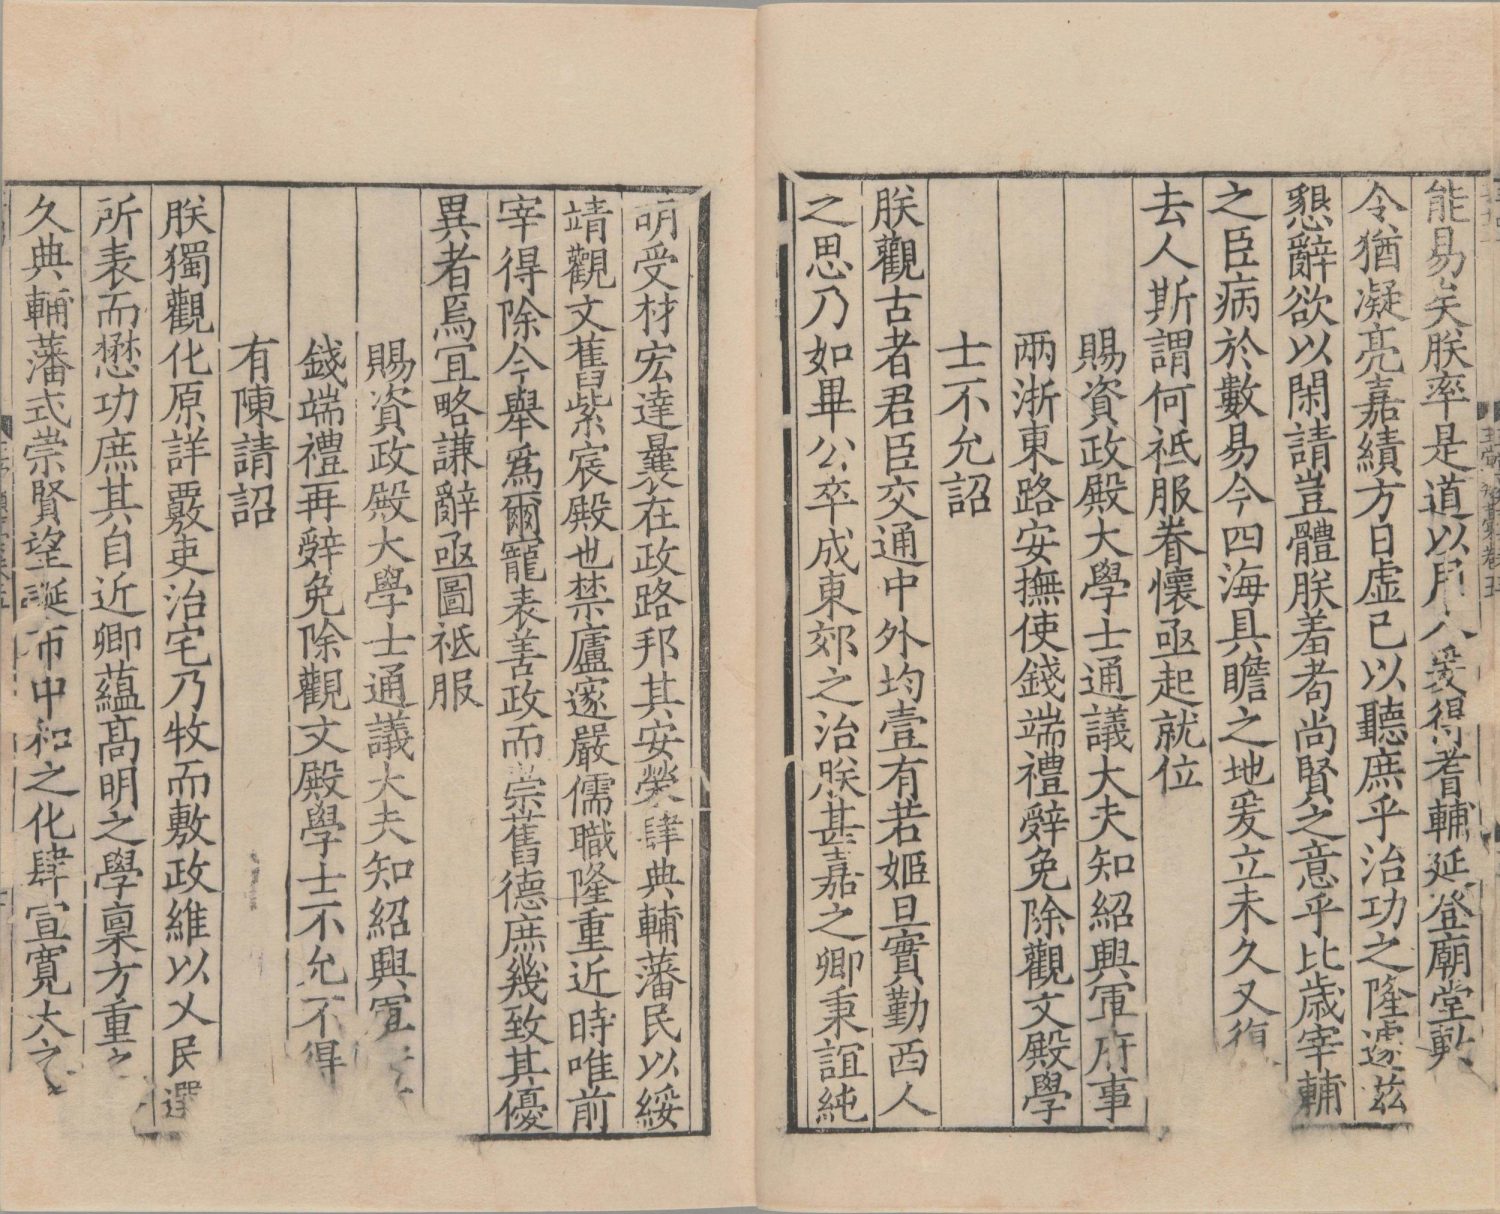 能易矣朕率是道以用人爰得耆輔延登廟堂數
令猶凝亮嘉績方日虛已以聽庶乎治功之隆遽茲
懇辭欲以閑請豈體朕羞耉尚賢之意乎比歲宰輔
之臣病於數易今四海具瞻之地爰立未久又復
去人斯謂何祗服眷懷亟起就位
賜資政殿大學士通議大夫知紹興軍府事
兩浙東路安撫使錢端禮辭免除觀文殿學
士不允詔
朕觀古者君臣交通中外均壹有若姬旦實勤西人
之思乃如畢公卒成東郊之治朕甚嘉之卿秉誼純
明受材宏達曩在政路邦其安榮肆典輔藩民以綏
靖觀文舊紫宸殿也禁廬邃嚴儒職隆重近時唯前
宰得除今舉爲爾寵表善政而崇舊德庶幾致其優
異者焉宜略謙辭亟圖祗服
賜資政殿大學士通議大夫知紹興軍
錢端禮再辭免除觀文殿學士不允不得
有陳請詔
朕獨觀化原詳覈吏治宅乃牧而敷政維以乂民選
所表而懋功庶其自近卿蘊高明之學稟方重之
久典輔藩式崇賢望誕布中和之化肆宣寬大之